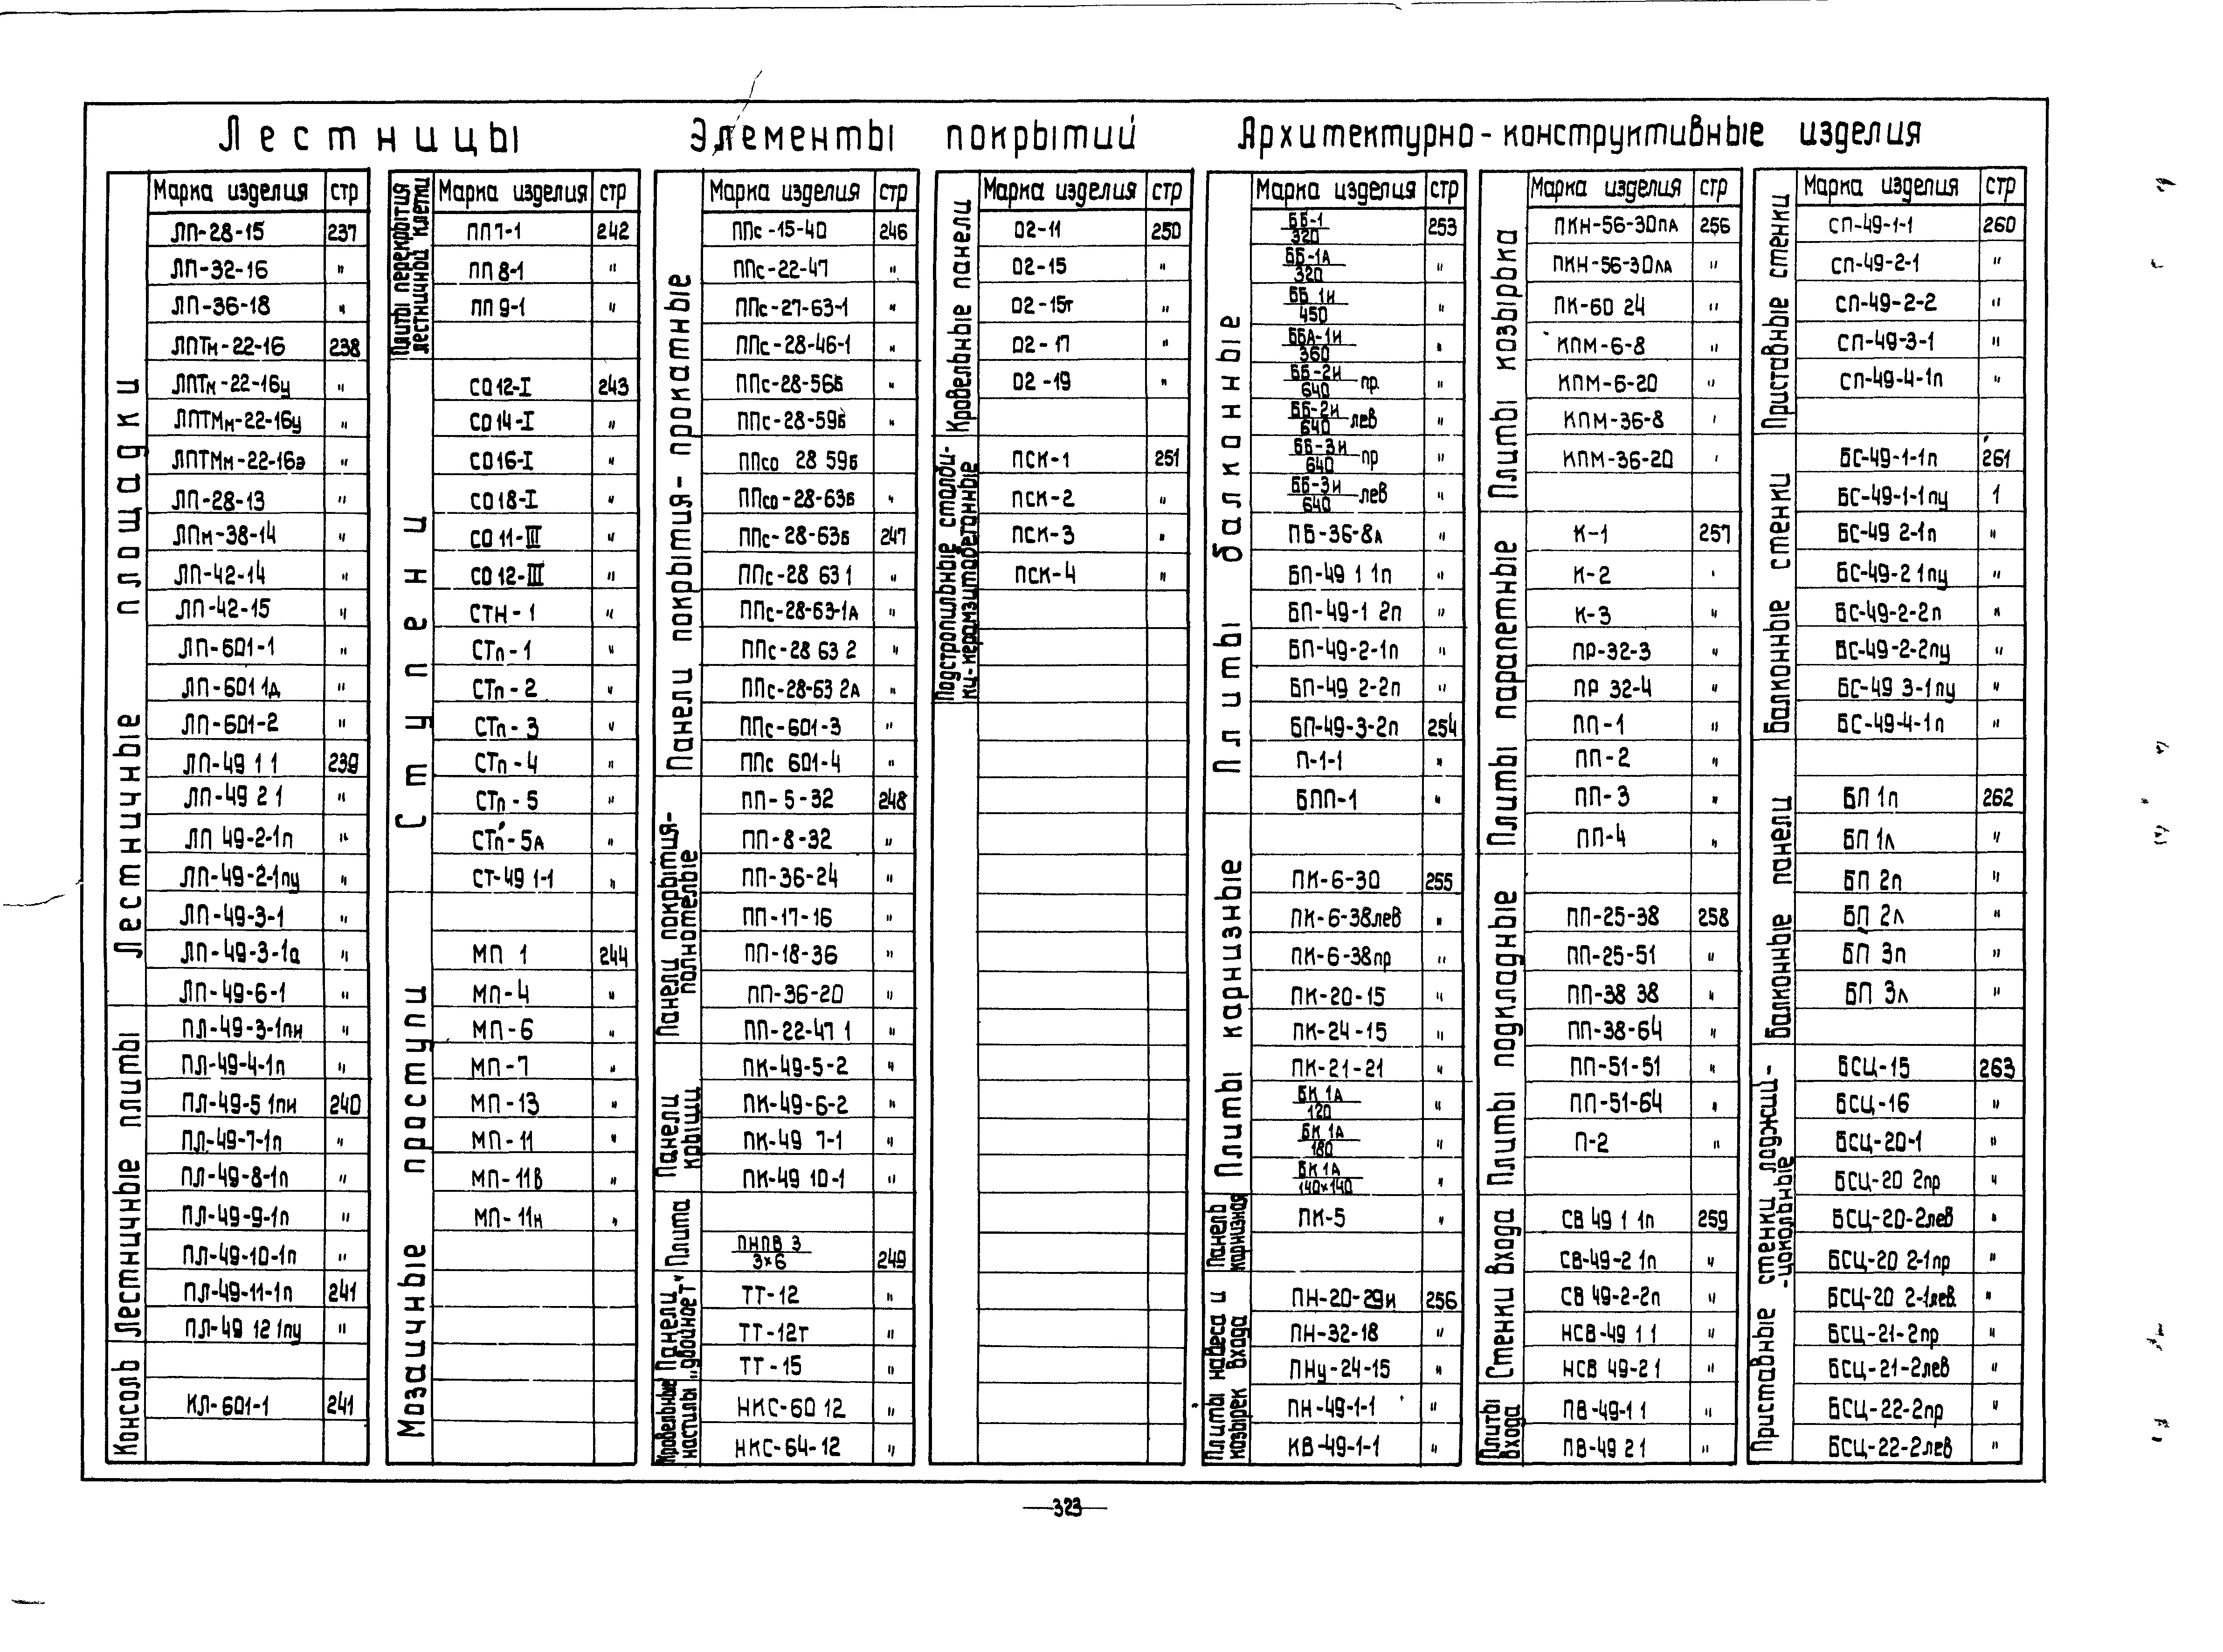 Лестницы
Лестничные площадки
Марка изделия стр
ЛП-28-15 237
ЛП-32-16 "
ЛП-36-18 "
ЛПТм-22-16 238
ЛПТм-22-16у "
ЛПТМм-22-16у "
ЛПТМм-22-16э "
ЛП-28-13 "
ЛПм-38-14 "
ЛП-42-14 "
ЛП-42-15 "
ЛП-601-1 "
ЛП-601 1д "
ЛП-601-2 "
ЛП-49 1 1 239
ЛП-49 2 1 "
ЛП 49-2-1п "
ЛП-49-2-1пу "
ЛП-49-3-1 "
ЛП-49-3-1а "
ЛП-49-6-1 "
Лестничные плиты
ПЛ-49-3-1пи "
ПЛ-49-4-1п "
ПЛ-49-5 1пи 240
ПЛ-49-7-1п "
ПЛ-49-8-1п "
ПЛ-49-9-1п "
ПЛ-49-10-1п "
ПЛ-49-11-1п 241
ПЛ-49 12 1пу "
Консоль
КЛ-601-1 241
Плиты перекрытия
лестничной клетки
Марка изделия стр
ПП 7-1 242
ПП 8-1 "
ПП 9-1 "
Ступени
СО 12-I 243
СО 14-I "
СО 16-I "
СО 18-I "
СО 11-III "
СО 12-III "
СТН-1 "
СТп-1 "
СТп-2 "
СТп-3 "
СТп-4 "
СТп-5 "
СТп-5А "
СТ-49 1-1 "
Мозаичные проступи
МП 1 244
МП-4 "
МП-6 "
МП-7 "
МП-13 "
МП-11 "
МП-11в "
МП-11н "
Элементы покрытий
Панели покрытия-прокатные
Марка изделия стр
ППс-15-40 246
ППс-22-47 "
ППс-27-63-1 "
ППс-28-46-1 "
ППс-28-56б "
ППс-28-59б "
ППсо 28 59б "
ППсо-28-63б "
ППс-28-63б 247
ППс-28 63 1 "
ППс-28-63-1А "
ППс-28 63 2 "
ППс-28-63 2А "
ППс-601-3 "
ППс 601-4 "
Панели покрытия-
полнотелые
ПП-5-32 248
ПП-8-32 "
ПП-36-24 "
ПП-17-16 "
ПП-18-36 "
ПП-36-20 "
ПП-22-47 1 "
Панели
крыши
ПК-49-5-2 "
ПК-49-6-2 "
ПК-49 7-1 "
ПК-49 10-1 "
Плита
ПНПВ 3
3×6 249
Кровельные Панели
настилы „двойное Т"
ТТ-12 "
ТТ-12т "
ТТ-15 "
НКС-60 12 "
НКС-64-12 "
Кровельные панели
Марка изделия стр
02-11 250
02-15 "
02-15т "
02-17 "
02-19 "
Подстропильные столби-
ки-керамзитобетонные
ПСК-1 251
ПСК-2 "
ПСК-3 "
ПСК-4 "
Архитектурно-конструктивные изделия
Плиты балконные
Марка изделия стр
ББ-1
320 253
ББ-1А
320 "
ББ 1и
450 "
ББА-1и
360 "
ББ-2и
640 пр. "
ББ-2и
640 лев "
ББ-3и
640 пр "
ББ-3и
640 лев "
ПБ-36-8А "
БП-49 1 1п "
БП-49-1 2п "
БП-49-2-1п "
БП-49 2-2п "
БП-49-3-2п 254
П-1-1 "
БПП-1 "
Плиты карнизные
ПК-6-30 255
ПК-6-38лев "
ПК-6-38пр "
ПК-20-15 "
ПК-24-15 "
ПК-21-21 "
БК 1А
120 "
БК 1А
180 "
БК 1А
140×140 "
Панель
карнизная
ПК-5 "
Плиты навеса и
козырек входа
ПН-20-29и 256
ПН-32-18 "
ПНу-24-15 "
ПН-49-1-1 "
КВ-49-1-1 "
Плиты козырька
Марка изделия стр
ПКН-56-30пА 256
ПКН-56-30лА "
ПК-60 24 "
КПМ-6-8 "
КПМ-6-20 "
КПМ-36-8 '
КПМ-36-20 '
Плиты парапетные
К-1 257
К-2 '
К-3 "
ПР-32-3 "
ПР 32-4 "
ПП-1 "
ПП-2 "
ПП-3 "
ПП-4 "
Плиты подкладные
ПП-25-38 258
ПП-25-51 "
ПП-38 38 "
ПП-38-64 "
ПП-51-51 "
ПП-51-64 "
П-2 "
Стенки входа
СВ 49 1 1п 259
СВ-49-2 1п "
СВ 49-2-2п "
НСВ-49 1 1 "
НСВ 49-2 1 "
Плиты
входа
ПВ-49-1 1 "
ПВ-49 2 1 "
Приставные стенки
Марка изделия стр
СП-49-1-1 260
СП-49-2-1 "
СП-49-2-2 "
СП-49-3-1 "
СП-49-4-1п "
Балконные стенки
БС-49-1-1п 261
БС-49-1-1пу 1
БС-49 2-1п "
БС-49-2 1пу "
БС-49-2-2п "
БС-49-2-2пу "
БС-49 3-1пу "
БС-49-4-1п "
Балконные панели
БП 1п 262
БП 1л "
БП 2п "
БП 2л "
БП 3п "
БП 3л "
Приставные стенки лоджий-
-цокольные
БСЦ-15 263
БСЦ-16 "
БСЦ-20-1 "
БСЦ-20 2пр "
БСЦ-20-2лев "
БСЦ-20 2-1пр "
БСЦ-20 2-1лев. "
БСЦ-21-2пр "
БСЦ-21-2лев "
БСЦ-22-2пр "
БСЦ-22-2лев "
—323—